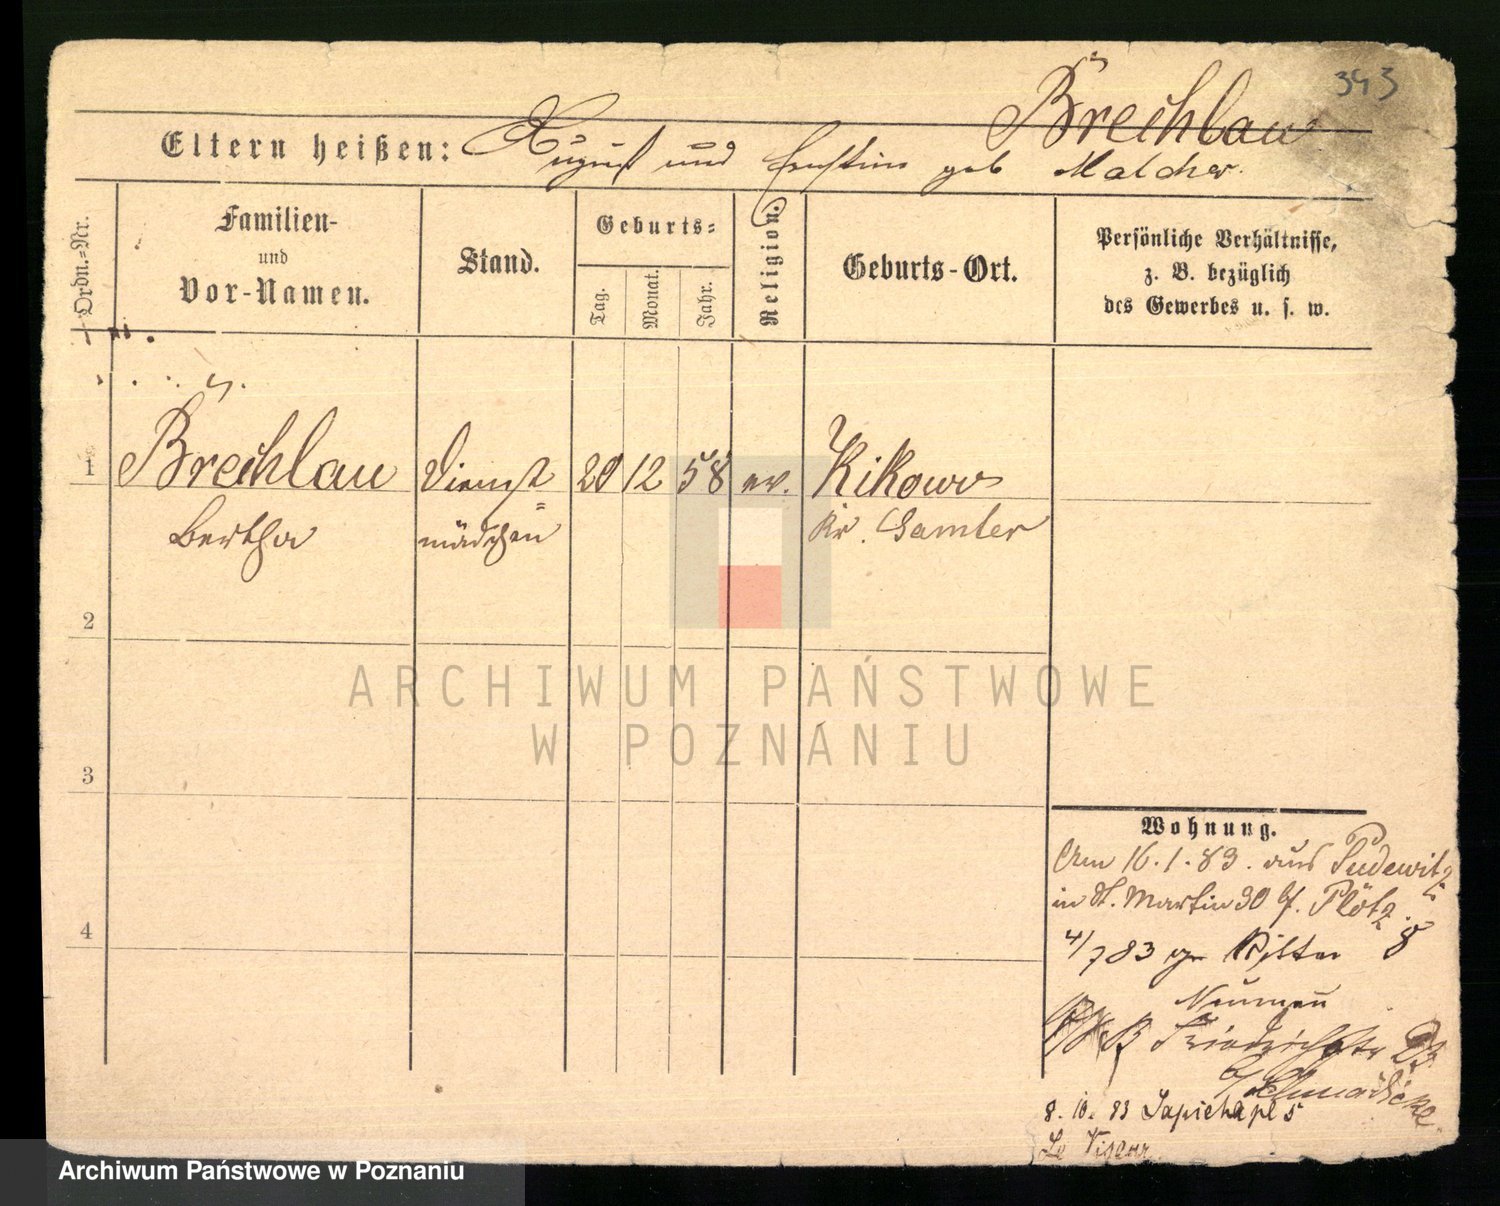 393
Brechlau
Eltern heißen: August und Ernstine geb Malcher.
Ordn.=Nr.
Familien-
und
Vor-Namen.
Stand.
Geburts=
Tag.
Monat.
Jahr.
Religion.
Geburts-Ort.
Persönliche Verhältnisse,
z. B. bezüglich
des Gewerbes u. s. w.
1 Brechlau Dienst= 20 12 58 ev. Kikowo
Bertha mädchen Kr. Samter
2
3
4
ARCHIWUM PAŃSTWOWE
W POZNANIU
Wohnung.
Am 16.1.83. aus Pudewitz
in St. Martin 30 b/. Plötz.
4/7 83 gr Ritter 8
Neuman
Friedrichstr 23
8. 10. 83 Sapiehapl 5
Le Viseur
Archiwum Państwowe w Poznaniu